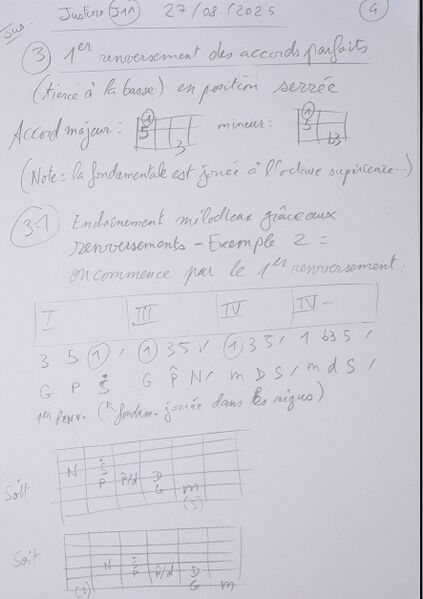 Jus.
Justine J11 27/08/2025 4
3 1er renversement des accords parfaits
(tierce à la basse) en position serrée
Accord majeur : 1 5 3 mineur : 1 5 b3
(Note : la fondamentale est jouée à l'octave supérieure)
3-1 Enchaînement mélodieux grâce aux
renversements - Exemple 2 =
on commence par le 1er renversement :
I III IV IV-
3 5 1 / 1 3 5 / 1 3 5 / 1 b3 5 /
G P S G P N / m D S / m d S /
1er renv. (fondam. jouée dans les aigus)
Soit
N S P P/d D G m (S)
Soit
(S) N S P P/d D G m